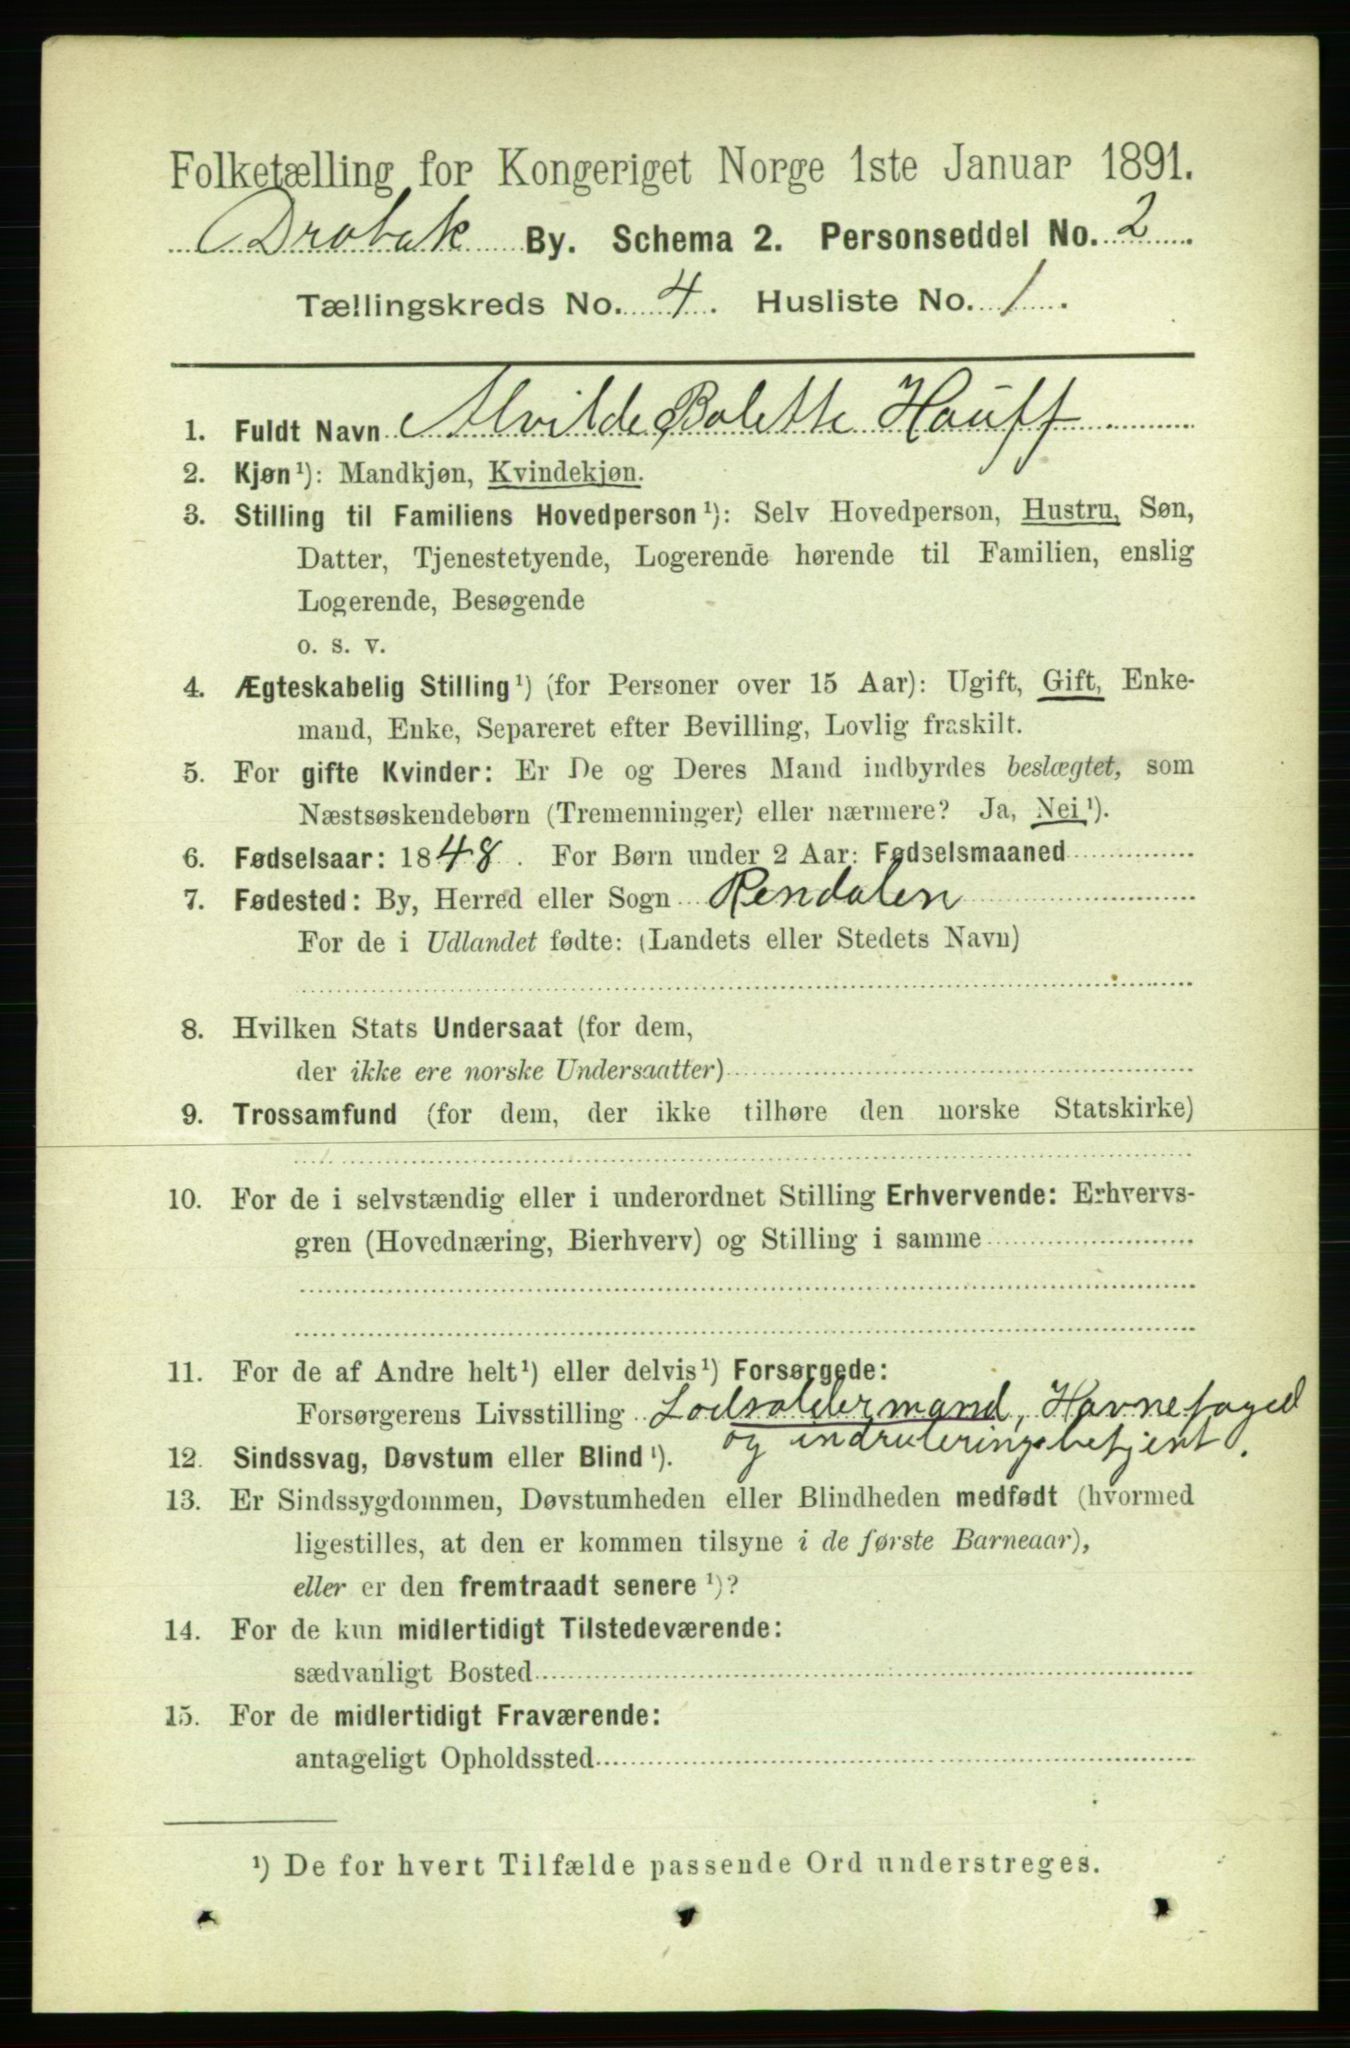 Folketælling for Kongeriget Norge 1ste Januar 1891.
Drøbak By. Schema 2. Personseddel No. 2
Tællingskreds No. 4. Husliste No. 1.
1. Fuldt Navn Alvilde Bolette Hauff
2. Kjøn¹): Mandkjøn, Kvindekjøn.
3. Stilling til Familiens Hovedperson¹): Selv Hovedperson, Hustru, Søn,
Datter, Tjenestetyende, Logerende hørende til Familien, enslig
Logerende, Besøgende
o. s. v.
4. Ægteskabelig Stilling¹) (for Personer over 15 Aar): Ugift, Gift, Enke-
mand, Enke, Separeret efter Bevilling, Lovlig fraskilt.
5. For gifte Kvinder: Er De og Deres Mand indbyrdes beslægtet, som
Næstsøskendebørn (Tremenninger) eller nærmere? Ja, Nei¹).
6. Fødselsaar: 1848. For Børn under 2 Aar: Fødselsmaaned
7. Fødested: By, Herred eller Sogn Rendalen
For de i Udlandet fødte: (Landets eller Stedets Navn)
8. Hvilken Stats Undersaat (for dem,
der ikke ere norske Undersaatter)
9. Trossamfund (for dem, der ikke tilhøre den norske Statskirke)
10. For de i selvstændig eller i underordnet Stilling Erhvervende: Erhvervs-
gren (Hovednæring, Bierhverv) og Stilling i samme
11. For de af Andre helt¹) eller delvis¹) Forsørgede:
Forsørgerens Livsstilling Lodsoldermand, Havnefoged
og indruleringsbetjent.
12. Sindssvag, Døvstum eller Blind¹).
13. Er Sindssygdommen, Døvstumheden eller Blindheden medfødt (hvormed
ligestilles, at den er kommen tilsyne i de første Barneaar),
eller er den fremtraadt senere¹)?
14. For de kun midlertidigt Tilstedeværende:
sædvanligt Bosted
15. For de midlertidigt Fraværende:
antageligt Opholdssted
¹) De for hvert Tilfælde passende Ord understreges.